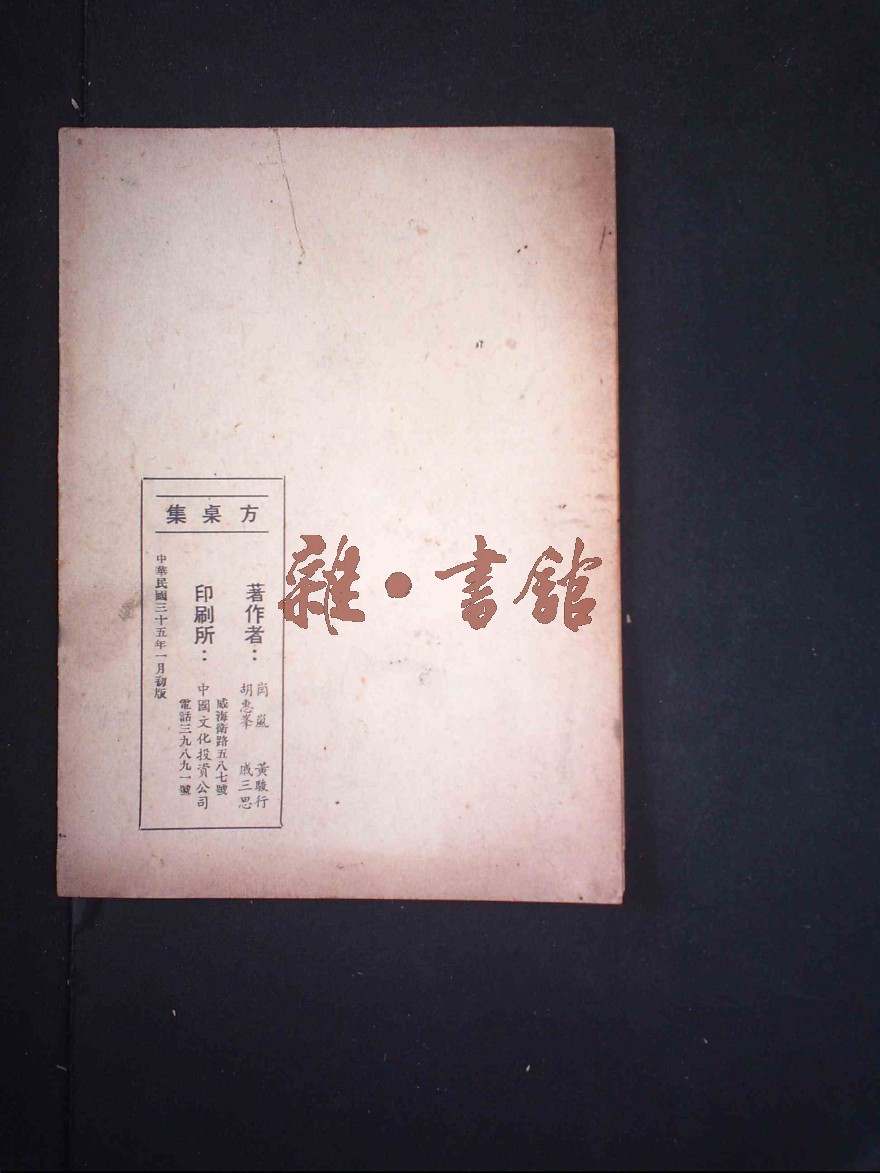 方桌集
著作者：
岗嵐　黃駿行
胡惠峯　戚三思
印刷所：
威海衛路五八七號
中國文化投資公司
電話三九八九一號
中華民國三十五年一月初版
雜·書館